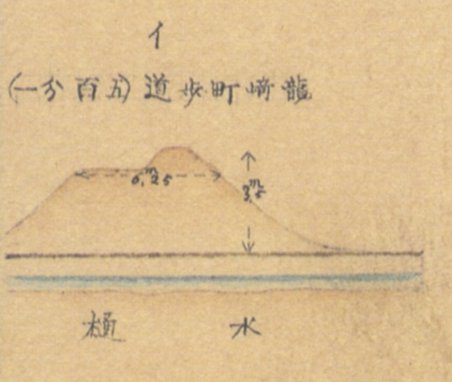 イ
龍崎町歩道(五百分一)
6,ᵐ25
3,ᵐ5
水樋